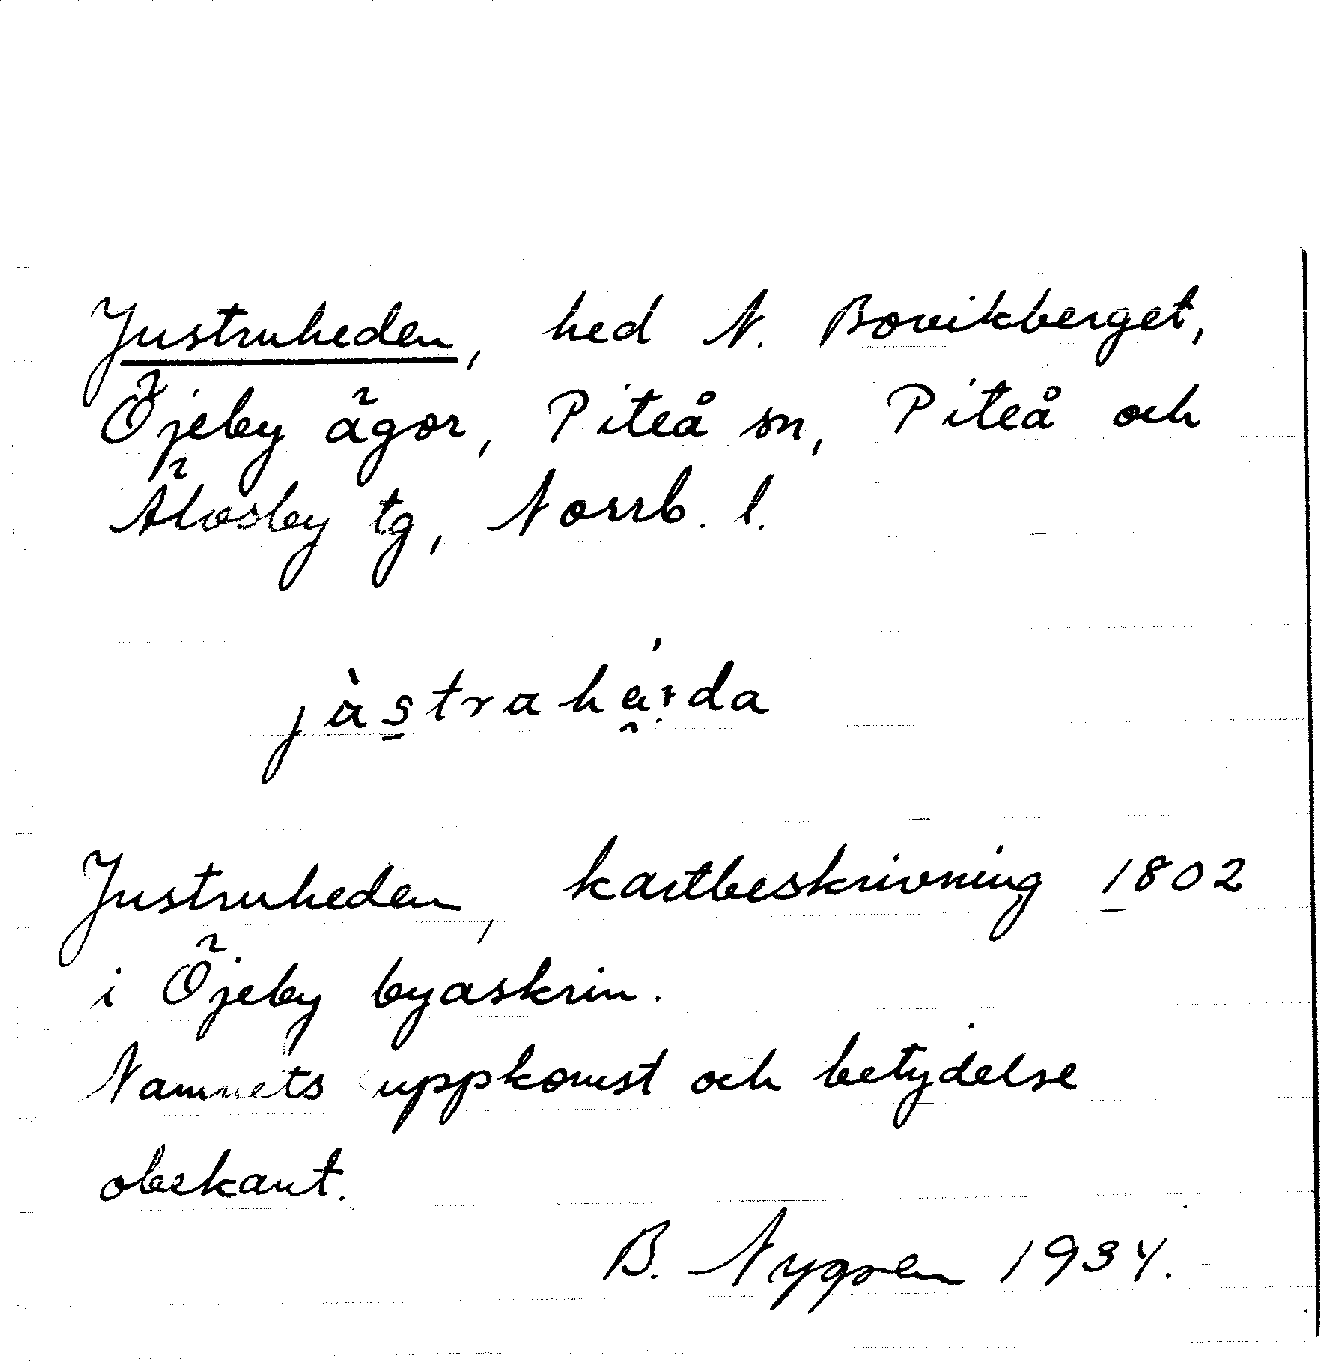 Justruheden, hed N. Bovikberget,
Öjeby ägor, Piteå sn, Piteå och
Älvsby tg, Norrb. l.
jàstrahá:da
Justruheden, kartbeskrivning 1802
i Öjeby byaskrin.
Namnets uppkomst och betydelse
obekant.
B. Nygren 1934.